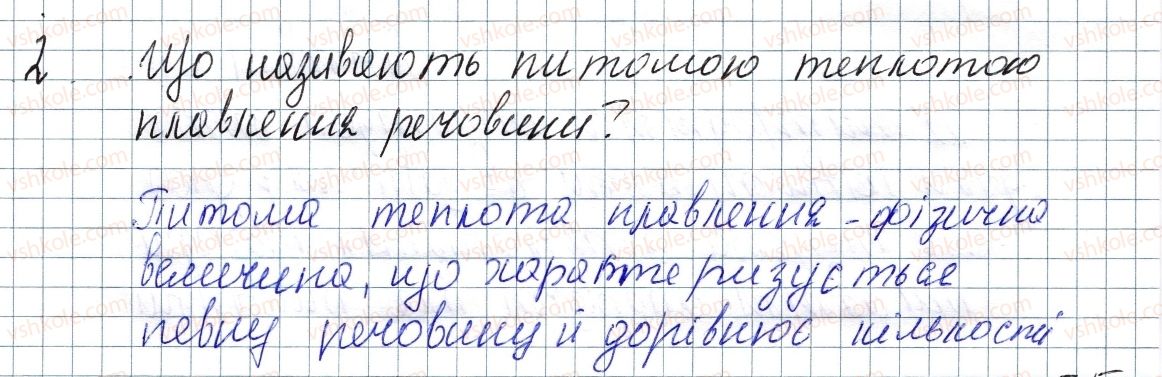 2 Що називають питомою теплотою
плавлення речовини?
Питома теплота плавлення - фізична
величина, що характеризується
певну речовину й дорівнює кількостей